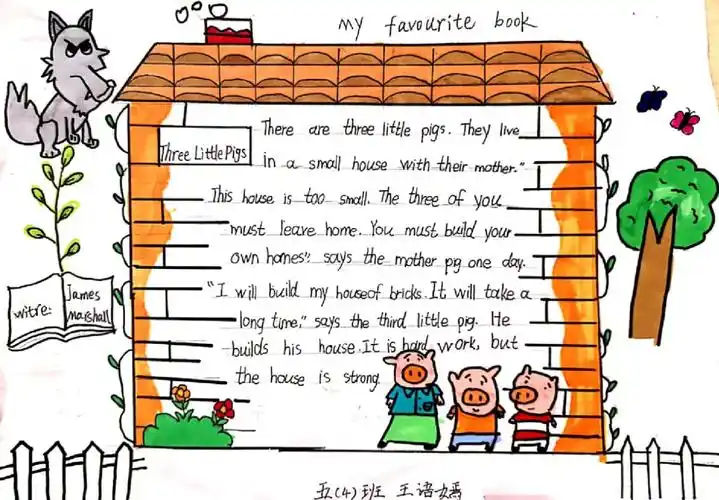 my favourite book
Three Little Pigs
There are three little pigs. They live
in a small house with their mother."
This house is too small. The three of you
must leave home. You must build your
own homes". says the mother pg one day.
"I will build my houseof bricks. It will take a
long time," says the third little pig. He
builds his house. It is hard work, but
the house is strong.
witre:
James
Marshall
五(4)班 王语嫣